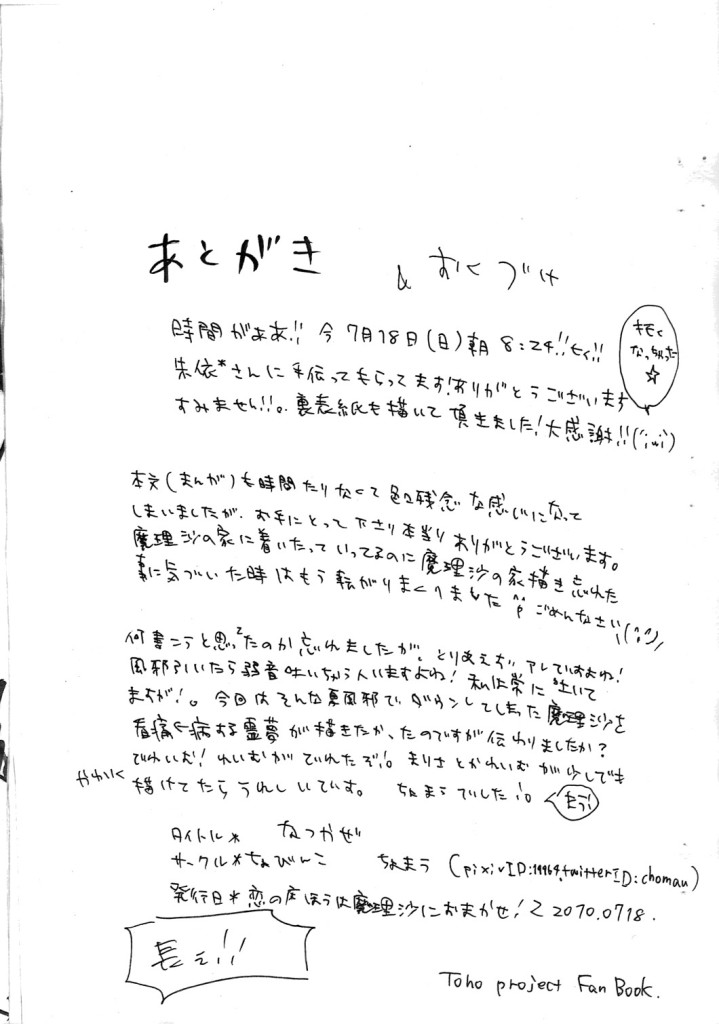 あとがき & おくづけ
時間がぁあ!! 今7月18日(日)朝8:24!!もく!!
キモく
なっちった
☆
朱依*さんに手伝ってもらってます!ありがとうございます
すみません!!。裏表紙も描いて頂きました!大感謝!!(´;ω;)
本文(まんが)も時間たりなくて色々残念な感じになって
しまいましたが、お手にとって下さり本当にありがとうございます。
魔理沙の家に着いたっていってるのに魔理沙の家描き忘れた
事に気づいた時はもう転がりまくりました ごめんなさい
何書こうと思ってたのか忘れましたが、とりあえず、アレですよね!
風邪引いたら弱音吐いちゃう人いますよね! 私は常に吐いて
ますが!。今回はそんな夏風邪でダウンしてしまった魔理沙を
看病する霊夢が描きたかったのですが伝わりましたか?
でれいむ!れいむがでれたぞ!。まりさとかれいむが少しでも
かわいく描けてたらうれしいです。 ちょまうでした!。
タイトル* なつかぜ
サークル*ちょびんこ ちょまう (pixivID:19964,twitterID:chomau)
発行日* 恋の魔ほうは魔理沙におまかせ!2 2010.0718.
長ぇ!!
Toho project Fan Book.